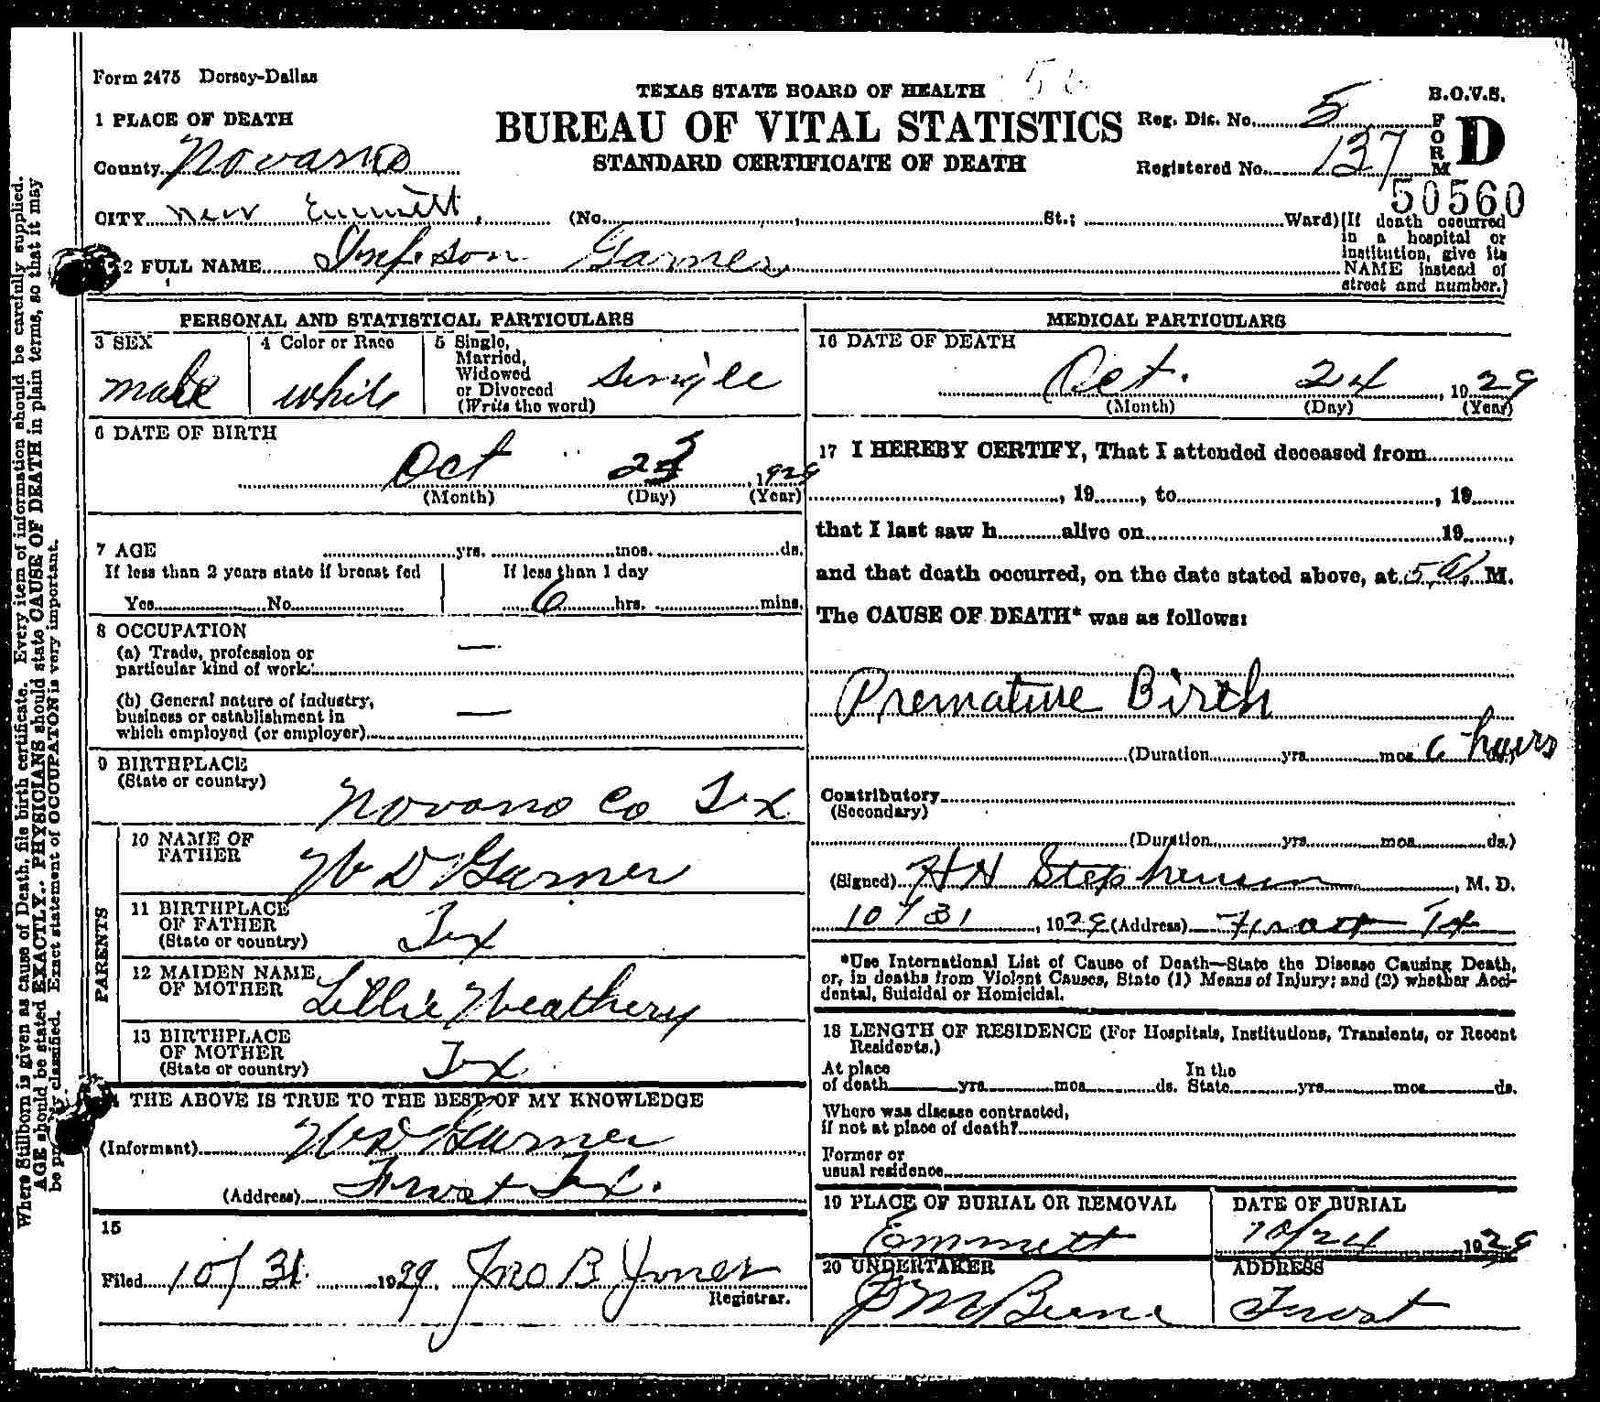 Form 2475 Dorsey-Dallas
TEXAS STATE BOARD OF HEALTH
B.O.V.S.
1 PLACE OF DEATH
BUREAU OF VITAL STATISTICS
Reg. Dis. No. 5
FORM D
County Novarro
STANDARD CERTIFICATE OF DEATH
Registered No. 137
50560
CITY near Emmett, (No. , St.; Ward)
(If death occurred in a hospital or institution, give its NAME instead of street and number.)
2 FULL NAME Inf. son Garner
PERSONAL AND STATISTICAL PARTICULARS
3 SEX male
4 Color or Race white
5 Single, Married, Widowed or Divorced (Write the word) single
6 DATE OF BIRTH
Oct 23, 1929
(Month) (Day) (Year)
7 AGE yrs. mos. ds.
If less than 2 years state if breast fed
Yes No
If less than 1 day
6 hrs. mins.
8 OCCUPATION
(a) Trade, profession or
particular kind of work: —
(b) General nature of industry,
business or establishment in
which employed (or employer) —
9 BIRTHPLACE
(State or country)
Novarro Co Tex
PARENTS
10 NAME OF FATHER
W D Garner
11 BIRTHPLACE OF FATHER
(State or country)
Tex
12 MAIDEN NAME OF MOTHER
Lillie Weathery
13 BIRTHPLACE OF MOTHER
(State or country)
Tex
THE ABOVE IS TRUE TO THE BEST OF MY KNOWLEDGE
(Informant) W D Garner
(Address) Frost Tex.
15
Filed 10/31 1929 Jno B Jones
Registrar.
MEDICAL PARTICULARS
16 DATE OF DEATH
Oct. 24, 1929
(Month) (Day) (Year)
17 I HEREBY CERTIFY, That I attended deceased from
, 19 , to , 19
that I last saw h alive on 19 ,
and that death occurred, on the date stated above, at 5 a. M.
The CAUSE OF DEATH* was as follows:
Premature Birth
(Duration yrs. mos. 6 hours ds.)
Contributory
(Secondary)
(Duration yrs. mos. ds.)
(Signed) H H Stephenson, M. D.
10/31, 1929 (Address) Frost Tx
*Use International List of Cause of Death—State the Disease Causing Death,
or, in deaths from Violent Causes, State (1) Means of Injury; and (2) whether Acci-
dental, Suicidal or Homicidal.
18 LENGTH OF RESIDENCE (For Hospitals, Institutions, Transients, or Recent
Residents.)
At place of death yrs. mos. ds. In the State yrs. mos. ds.
Where was disease contracted,
if not at place of death?
Former or
usual residence
19 PLACE OF BURIAL OR REMOVAL
Emmett
DATE OF BURIAL
10/24 1929
20 UNDERTAKER
ADDRESS
Frost
Where Stillborn is given as cause of Death, file birth certificate. Every item of information should be carefully supplied.
AGE should be stated EXACTLY. PHYSICIANS should state CAUSE OF DEATH in plain terms, so that it may
be properly classified. Exact statement of OCCUPATON is very important.